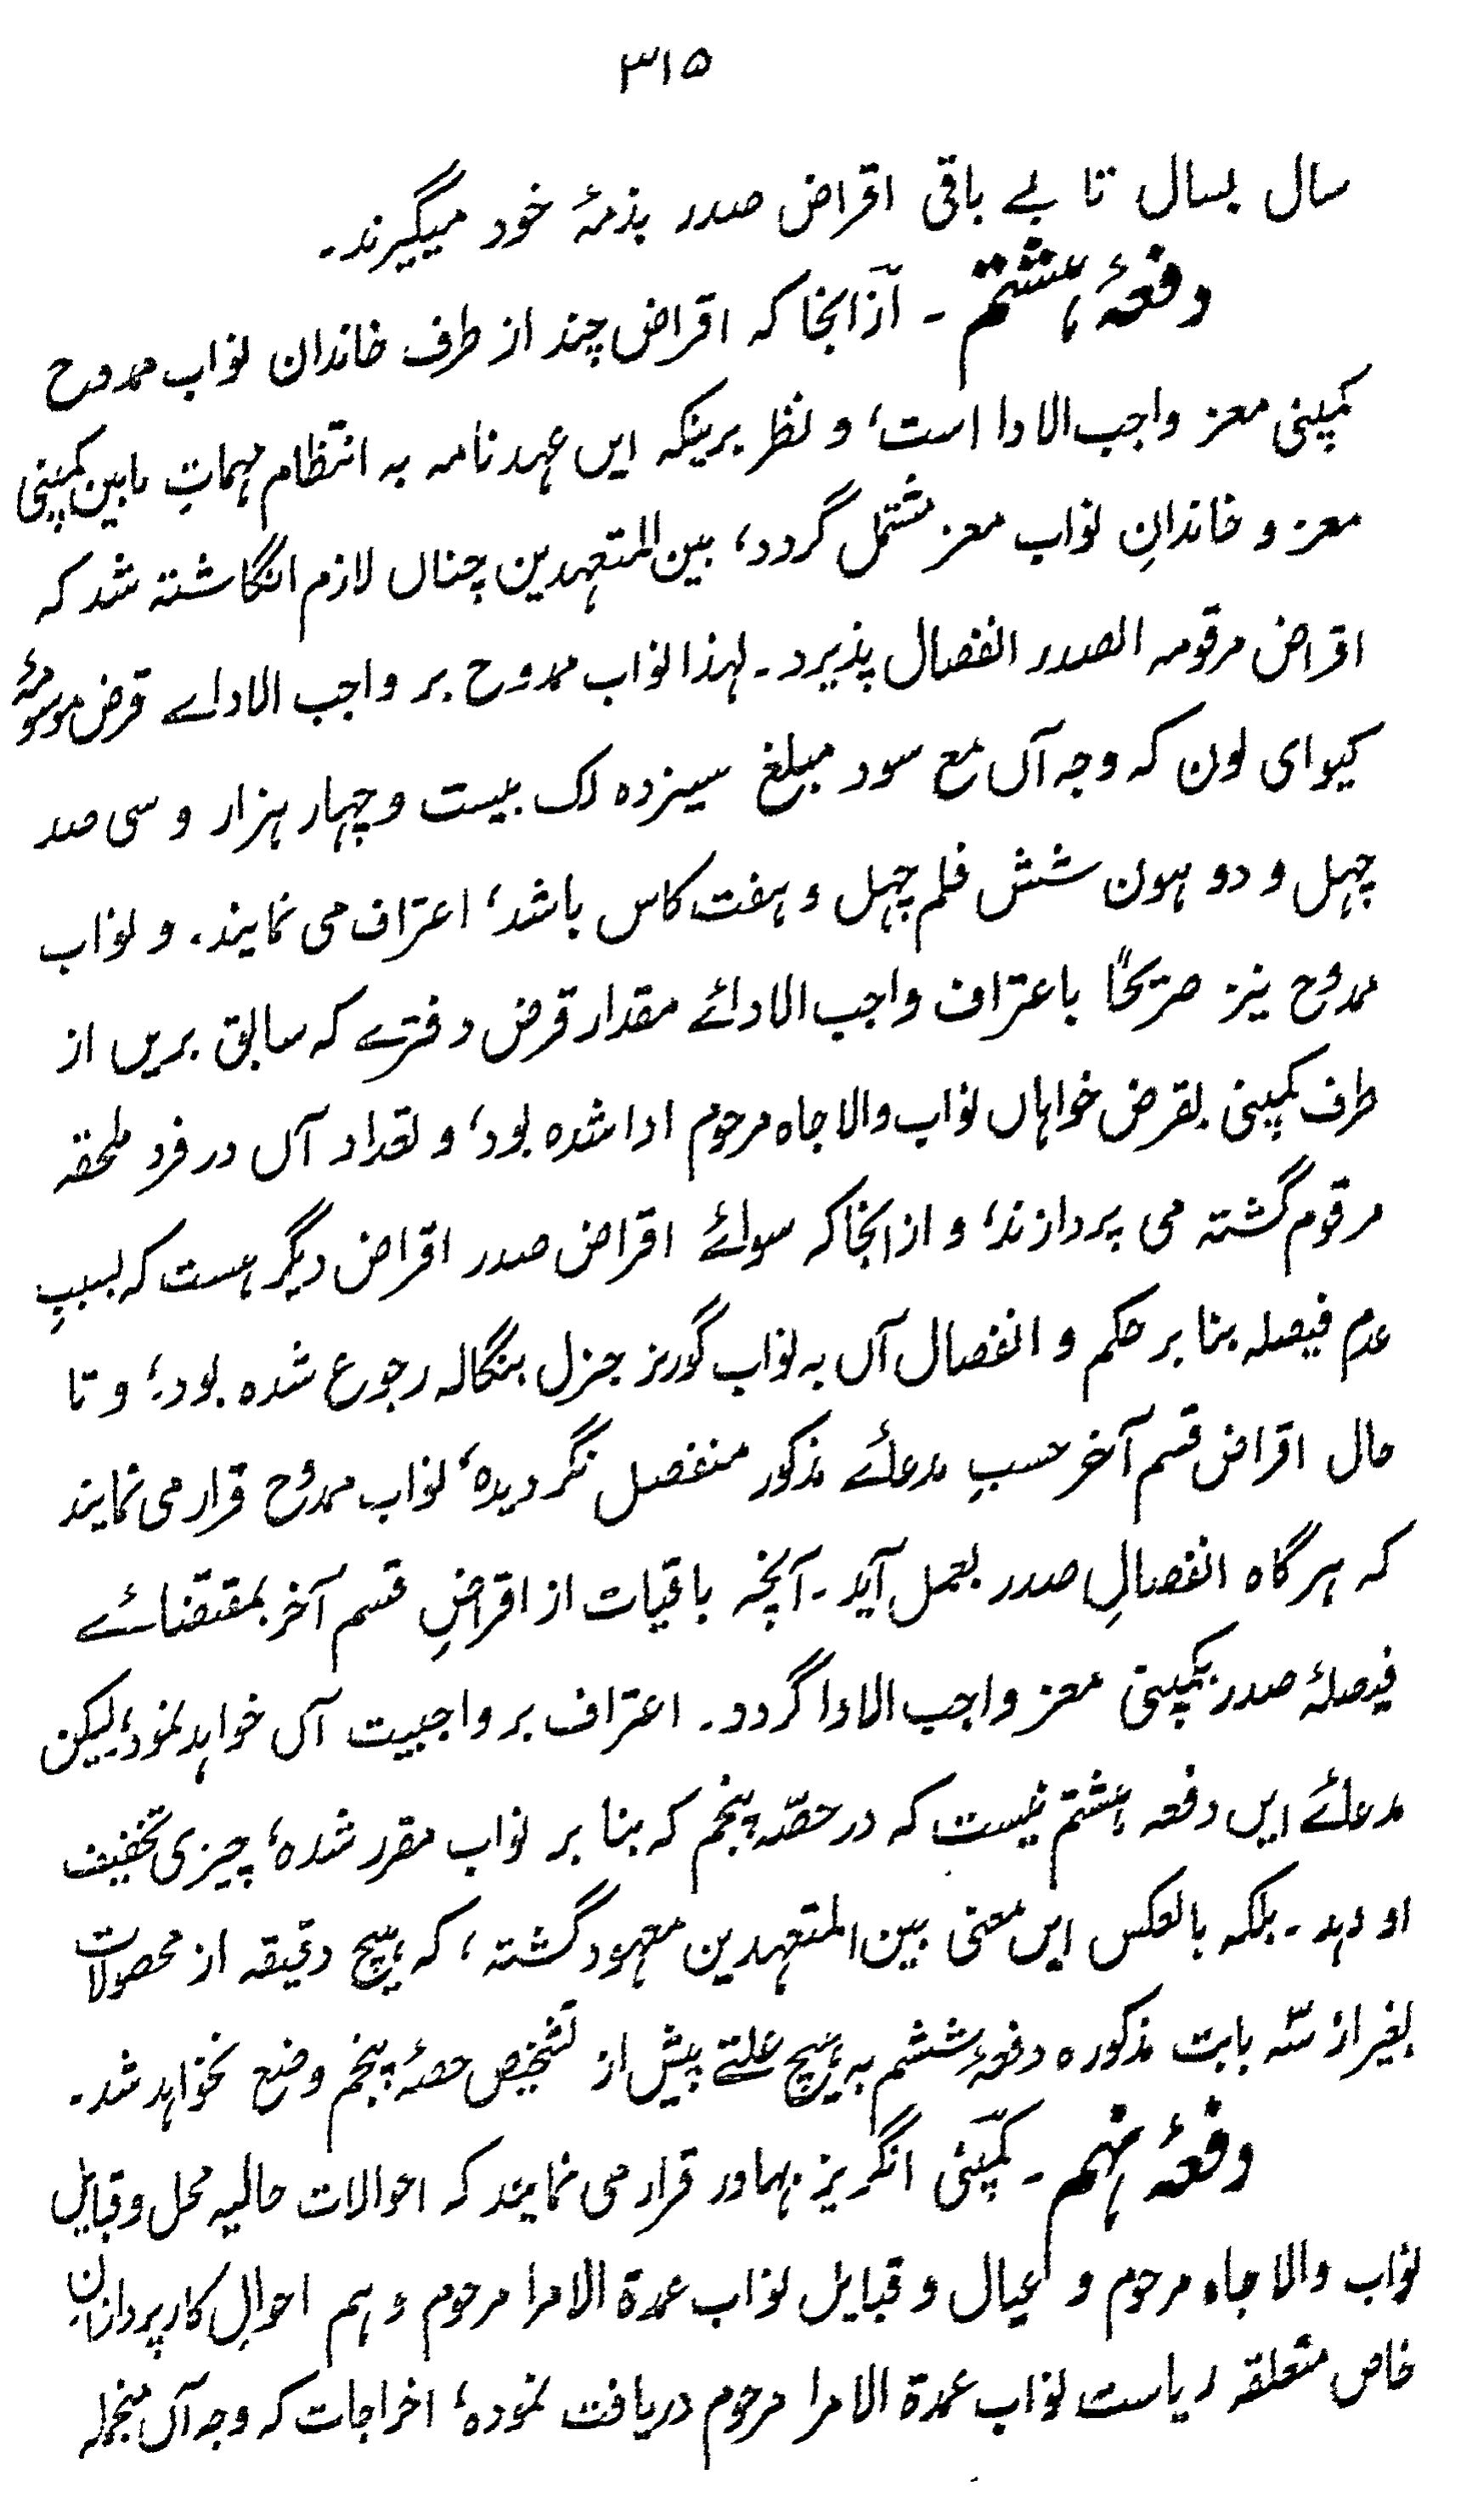 ۳۱۵
سال بسال تا بے باقی اقراض صدر بذمۂ خود میگیرند۔
دفعۂ ہشتم ۔ ازآنجا کہ اقراض چند از طرف خاندان نواب ممدوح
کمپنی معز واجب الادا است، و نظر برینکہ ایں عہد نامہ بہ انتظام مہماتِ مابین کمپنی
معز و خاندانِ نواب معز مشتمل گردد، بین المتعہدین چناں لازم انگاشتہ شد کہ
اقراض مرقومہ الصدر انفصال پذیرد۔ لہذا نواب ممدوح بر واجب الاداے قرض موسومۂ
کیوای لون کہ وجہ آں مع سود مبلغ سیزدہ لک بیست و چہار ہزار و سی صد
چہل و دو ہون شش فلم چہل و ہفت کاس باشد، اعتراف می نمایند۔ و نواب
ممدوح نیز صریحًا باعتراف واجب الادائے مقدار قرض دفترے کہ سابق بریں از
طرف کمپنی بقرض خواہاں نواب والا جاہ مرحوم ادا شدہ بود، و تعداد آں در فرد ملحقہ
مرقوم گشتہ می پردازند، و از انجا کہ سوائے اقراض صدر اقراض دیگر ہست کہ بسببِ
عدم فیصلہ بنا بر حکم و انفصال آں بہ نواب گورنر جنرل بنگالہ رجوع شدہ بود، و تا
حال اقراض قسم آخر حسبِ مدعائے مذکور منفصل نگردیدہ، نواب ممدوح قرار می نمایند
کہ ہر گاہ انفصالِ صدر بعمل آید۔ آنچہ باقیات از اقراضِ قسم آخر بمقتضائے
فیصلۂ صدر بکمپنی معز واجب الادا گردد۔ اعتراف بر واجبیت آں خواہد نمود، لیکن
مدعائے ایں دفعہ ہشتم نیست کہ در حصّۂ پنجم کہ بنا بر نواب مقرر شدہ، چیزی تخفیف
او دہد۔ بلکہ بالعکس ایں معنی بین المتعہدین معہود گشتہ، کہ ہیچ دقیقہ از محصولات
بغیر از سّہ بابت مذکورہ دفعۂ ششم بہ ہیچ علتے پیش از تشخیص حصۂ پنجم وضع نخواہد شد۔
دفعۂ نہم ۔ کمپّنی انگریز بہادر قرار می نمایند کہ احوالات حالیہ محل و قبایل
نواب والا جاہ مرحوم و عیال و قبایل نواب عمدۃ الامرا مرحوم و ہم احوالِ کارپردازانِ
خاص متعلقہ ریاست نواب عمدۃ الامرا مرحوم دریافت نمودہ، اخراجات کہ وجہ آں منجملہ